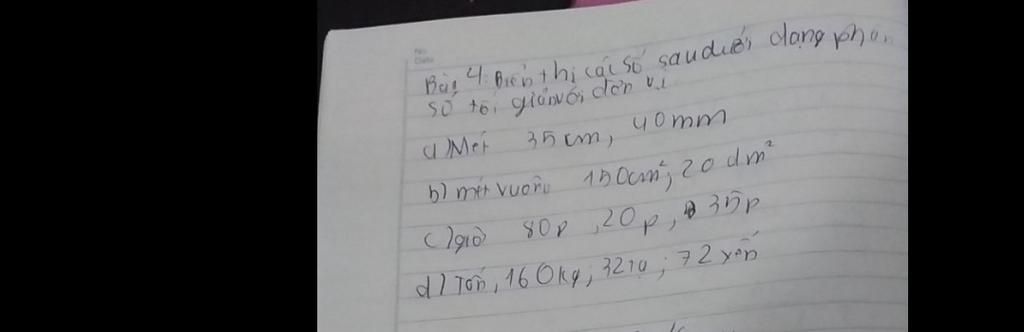 Bài 4. Biển thị các số sau dưới dạng phân
số tối giản với đơn vị
a) Mét 35 cm, 40 mm
b) mét vuông 150cm², 20 dm²
c) giờ 80p, 20p, 35p
d) Tấn, 160kg; 32 tạ; 72 yến